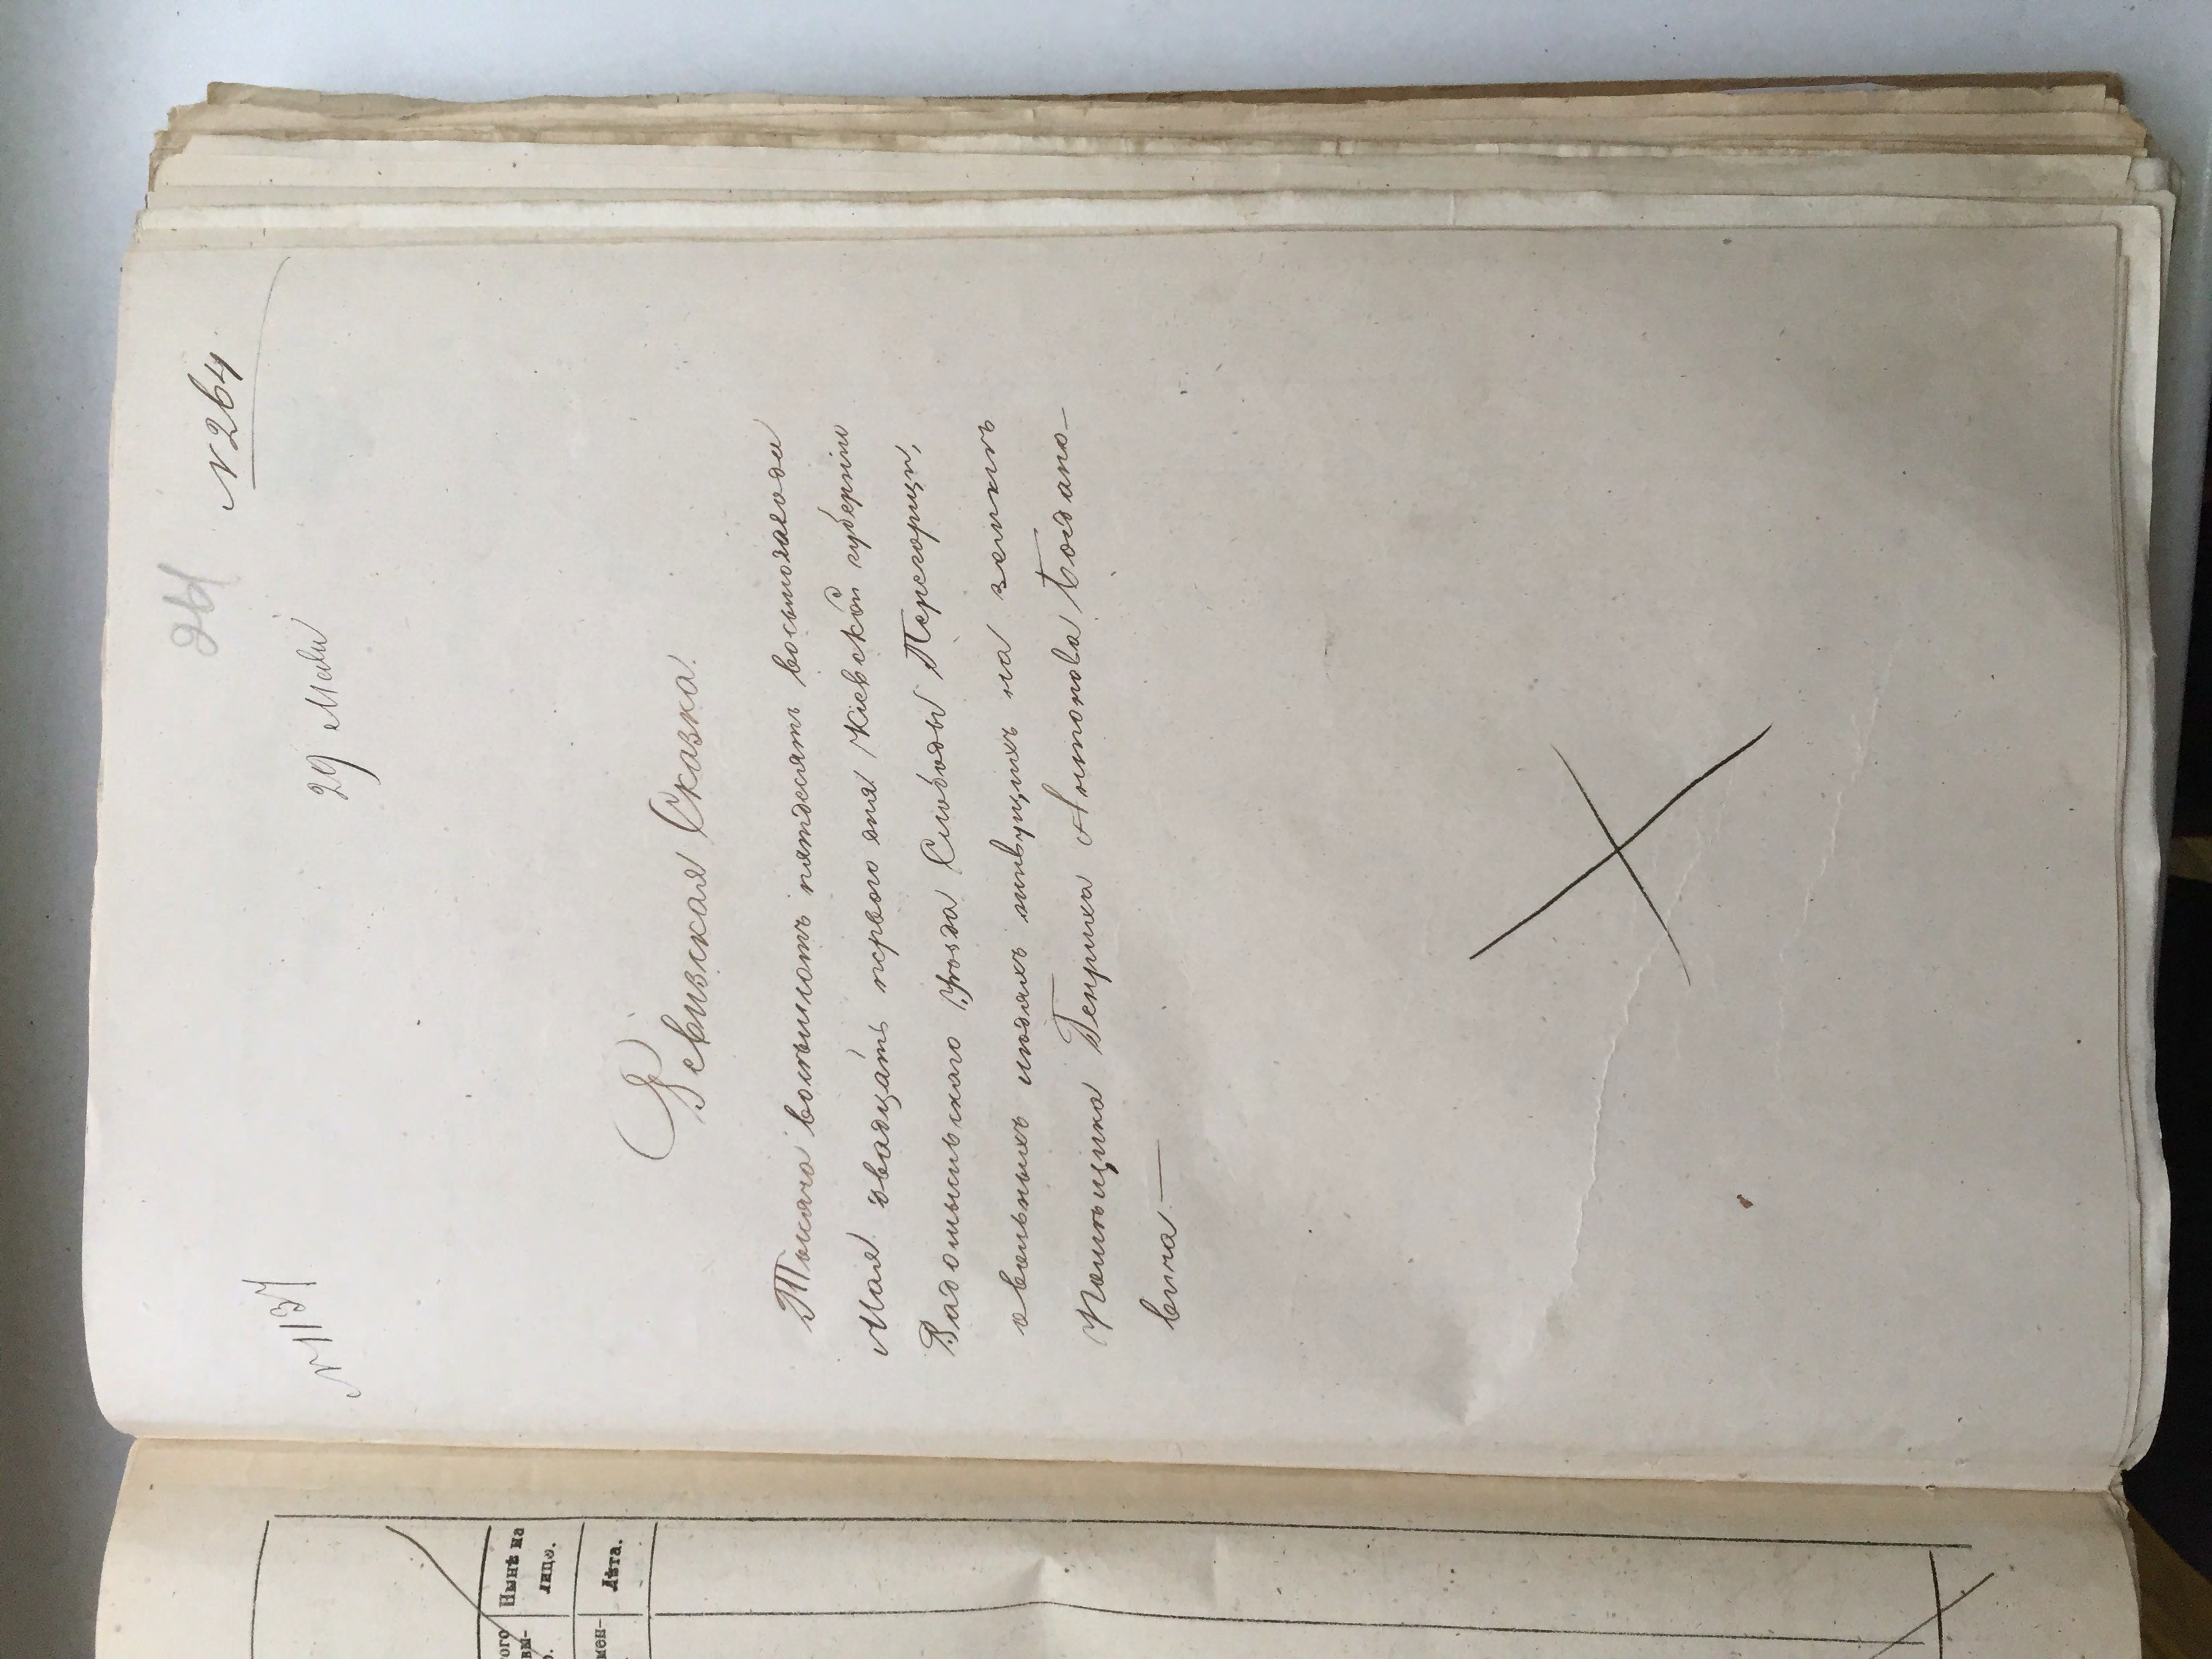 № 264
№ 1137
29 Мая
Ревизская Сказка.
Тысяча восемьсотъ пятдесятъ восьмагогода
Мая двадцать первого дня Кіевской губерніи
Радомысльскаго Уѣзда Слободы Пересорищи,
овольныхъ людяхъ живущихъ на земляхъ
Помѣщика Генриха Антонова Богдано-
вича —
Нынѣ на
лицо.
Лѣта.
ого
вы-
о.
мен-